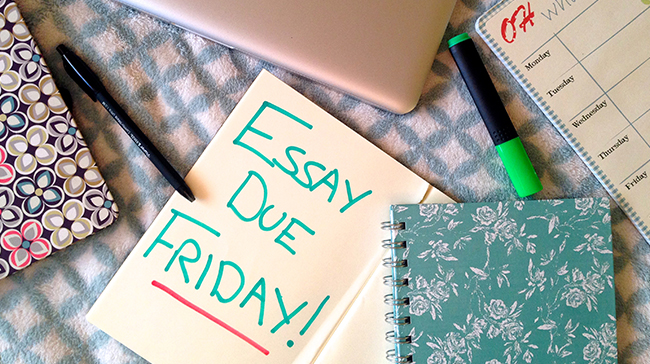 ESSAY
DUE
FRIDAY!
OH
Monday
Tuesday
Wednesday
Thursday
Friday